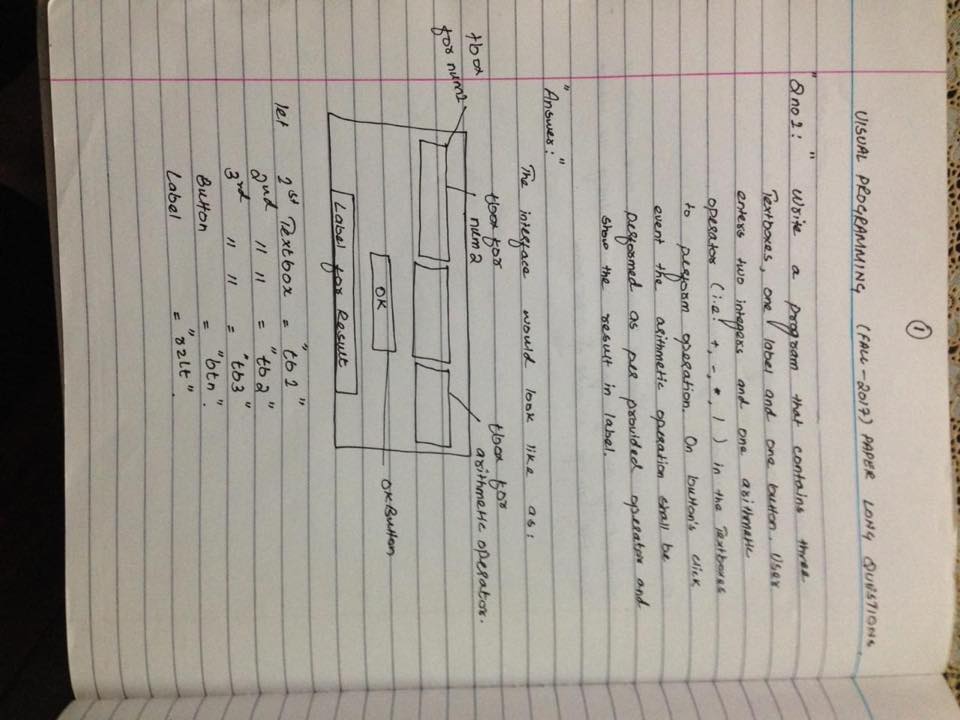 ①
VISUAL PROGRAMMING (FALL-2017) PAPER LONG QUESTIONS.
"Q no 1:" Write a program that contains three
Textboxes, one label and one button. User
enters two integers and one arithmetic
operator (i.e: +, -, *, / ) in the Textboxes
to perform operation. On button's click
event the arithmetic operation shall be
performed as per provided operator and
show the result in label.
"Answer:"
The interface would look like as:
tbox
for num1
tbox for
num2
tbox for
arithmetic operator.
OK
OK Button
Label for Result
let 1st Textbox = "tb1"
2nd " " = "tb2"
3rd " " = "tb3"
Button = "btn".
Label = "rzlt".